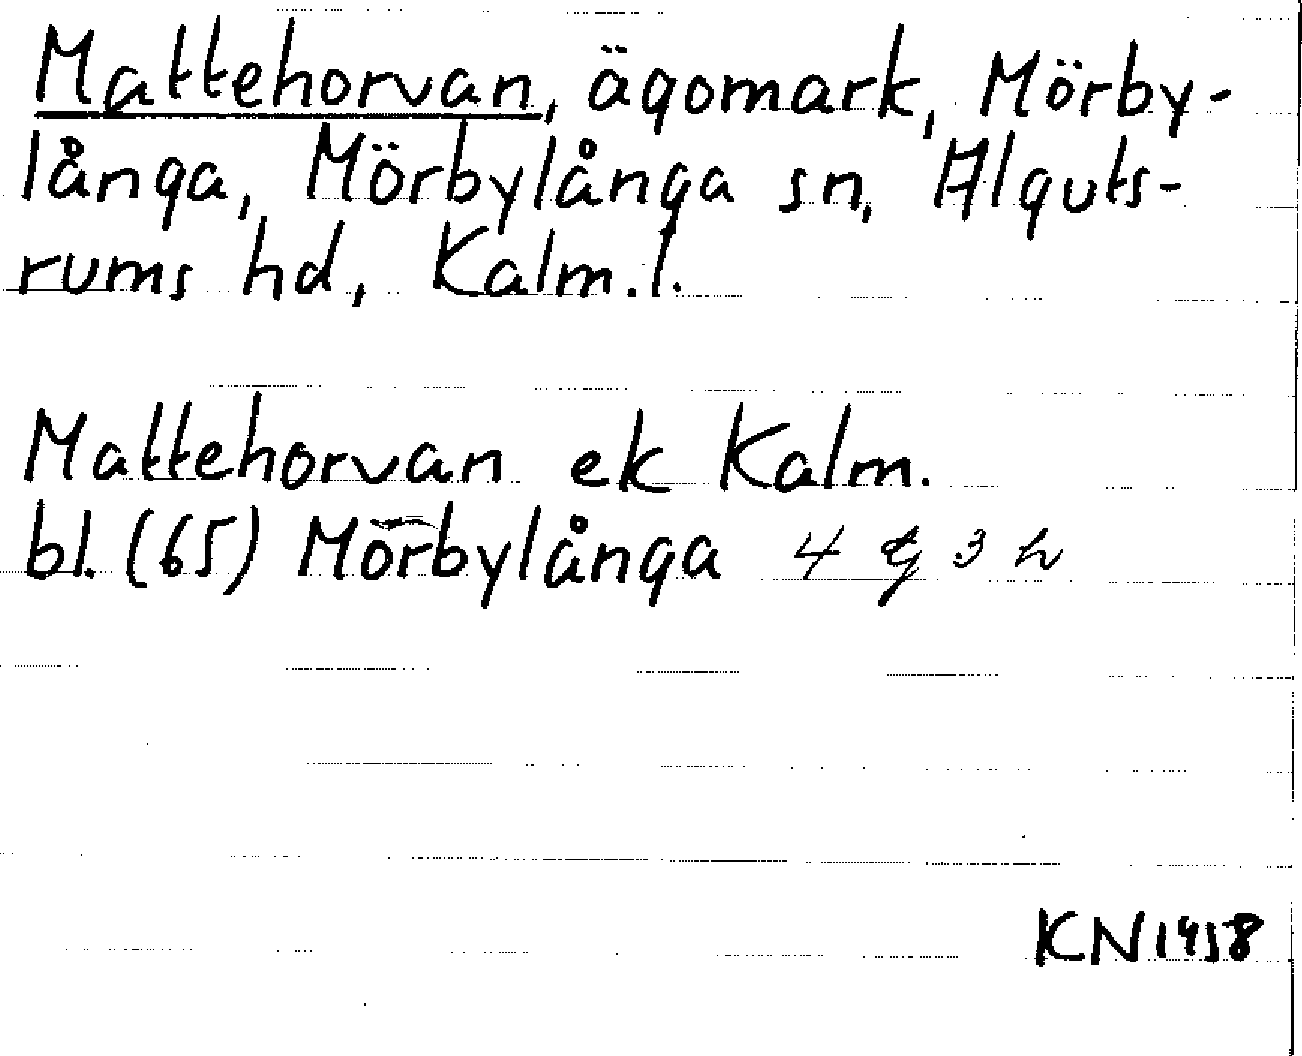 Mattehorvan, ägomark, Mörby-
långa, Mörbylånga sn, Alguts-
rums hd, Kalm.l.
Mattehorvan ek Kalm.
bl. (65) Mörbylånga 4 g 3 h
KN1958